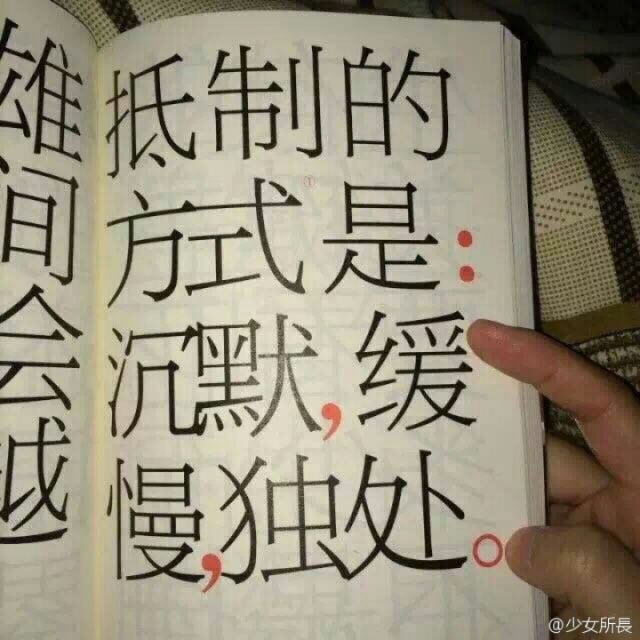 雄
间
会
越
抵制的
方式①是：
沉默，缓
慢，独处。
@少女所長